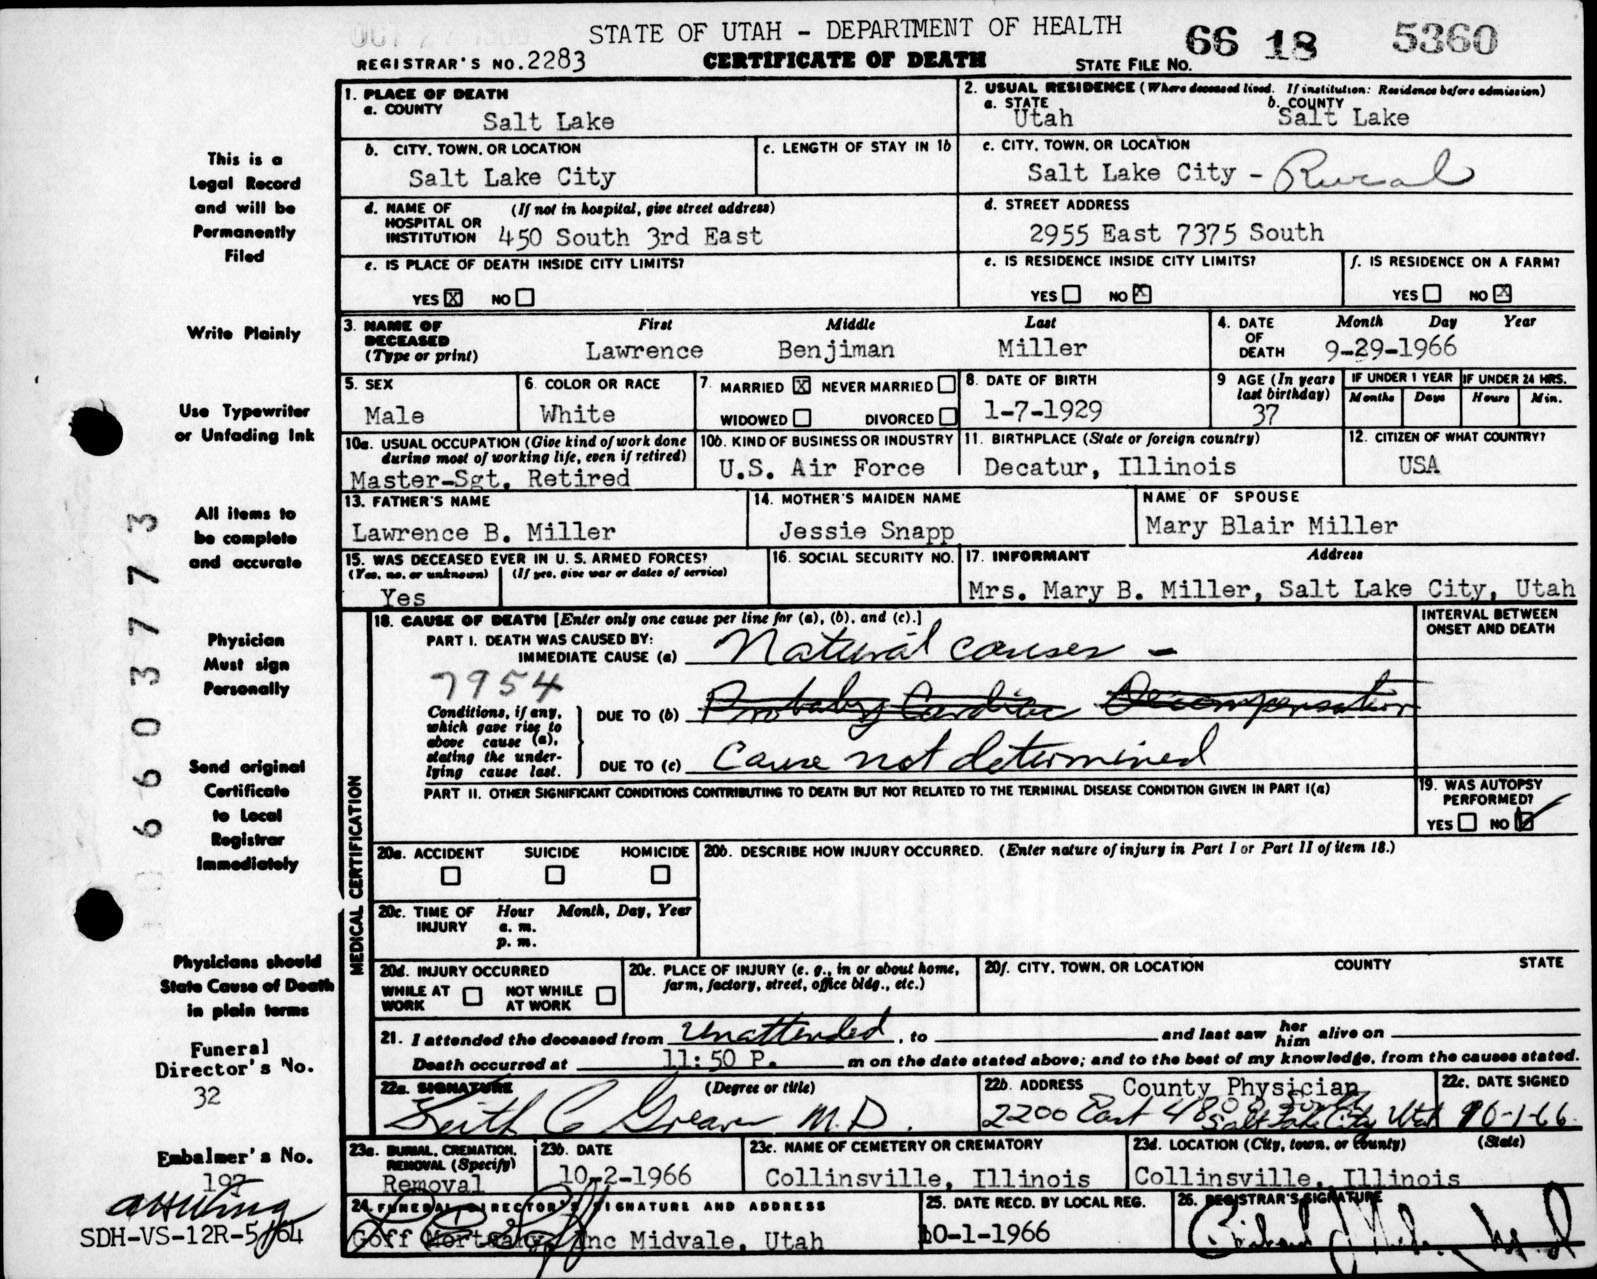 STATE OF UTAH - DEPARTMENT OF HEALTH
66 18 5360
REGISTRAR'S NO. 2283
CERTIFICATE OF DEATH
STATE FILE NO.
1. PLACE OF DEATH
a. COUNTY
Salt Lake
2. USUAL RESIDENCE (Where deceased lived. If institution: Residence before admission)
a. STATE
Utah
b. COUNTY
Salt Lake
b. CITY, TOWN, OR LOCATION
Salt Lake City
c. LENGTH OF STAY IN 1b
c. CITY, TOWN, OR LOCATION
Salt Lake City - Rural
d. NAME OF HOSPITAL OR INSTITUTION (If not in hospital, give street address)
450 South 3rd East
d. STREET ADDRESS
2955 East 7375 South
e. IS PLACE OF DEATH INSIDE CITY LIMITS?
YES X NO
e. IS RESIDENCE INSIDE CITY LIMITS?
YES NO X
f. IS RESIDENCE ON A FARM?
YES NO X
3. NAME OF DECEASED (Type or print)
First Middle Last
Lawrence Benjiman Miller
4. DATE OF DEATH
Month Day Year
9-29-1966
5. SEX
Male
6. COLOR OR RACE
White
7. MARRIED X NEVER MARRIED
WIDOWED DIVORCED
8. DATE OF BIRTH
1-7-1929
9 AGE (In years last birthday)
37
IF UNDER 1 YEAR
Months Days
IF UNDER 24 HRS.
Hours Min.
10a. USUAL OCCUPATION (Give kind of work done during most of working life, even if retired)
Master-Sgt. Retired
10b. KIND OF BUSINESS OR INDUSTRY
U.S. Air Force
11. BIRTHPLACE (State or foreign country)
Decatur, Illinois
12. CITIZEN OF WHAT COUNTRY?
USA
13. FATHER'S NAME
Lawrence B. Miller
14. MOTHER'S MAIDEN NAME
Jessie Snapp
NAME OF SPOUSE
Mary Blair Miller
15. WAS DECEASED EVER IN U. S. ARMED FORCES?
(Yes, no, or unknown) (If yes, give war or dates of service)
Yes
16. SOCIAL SECURITY NO.
17. INFORMANT Address
Mrs. Mary B. Miller, Salt Lake City, Utah
MEDICAL CERTIFICATION
18. CAUSE OF DEATH [Enter only one cause per line for (a), (b), and (c).]
INTERVAL BETWEEN ONSET AND DEATH
PART I. DEATH WAS CAUSED BY:
IMMEDIATE CAUSE (a) Natural causes -
7954
Conditions, if any, which gave rise to above cause (a), stating the underlying cause last.
DUE TO (b) Probably Cardiac Decompensation
DUE TO (c) cause not determined
PART II. OTHER SIGNIFICANT CONDITIONS CONTRIBUTING TO DEATH BUT NOT RELATED TO THE TERMINAL DISEASE CONDITION GIVEN IN PART I(a)
19. WAS AUTOPSY PERFORMED?
YES NO ✓
20a. ACCIDENT SUICIDE HOMICIDE
20b. DESCRIBE HOW INJURY OCCURRED. (Enter nature of injury in Part I or Part II of item 18.)
20c. TIME OF INJURY Hour Month, Day, Year
a. m.
p. m.
20d. INJURY OCCURRED
WHILE AT WORK NOT WHILE AT WORK
20e. PLACE OF INJURY (e. g., in or about home, farm, factory, street, office bldg., etc.)
20f. CITY, TOWN, OR LOCATION COUNTY STATE
21. I attended the deceased from Unattended , to and last saw her him alive on
Death occurred at 11:50 P. m on the date stated above; and to the best of my knowledge, from the causes stated.
22a. SIGNATURE (Degree or title)
Keith C M.D.
22b. ADDRESS County Physician
2200 East 4800 South
Salt Lake City Utah
22c. DATE SIGNED
10-1-66
23a. BURIAL, CREMATION, REMOVAL (Specify)
Removal
23b. DATE
10-2-1966
23c. NAME OF CEMETERY OR CREMATORY
Collinsville, Illinois
23d. LOCATION (City, town, or county) (State)
Collinsville, Illinois
24. FUNERAL DIRECTOR'S SIGNATURE AND ADDRESS
Goff Mortuary, Inc Midvale, Utah
25. DATE RECD. BY LOCAL REG.
10-1-1966
26. REGISTRAR'S SIGNATURE
This is a
Legal Record
and will be
Permanently
Filed
Write Plainly
Use Typewriter
or Unfading Ink
All items to
be complete
and accurate
Physician
Must sign
Personally
Send original
Certificate
to Local
Registrar
Immediately
Physicians should
State Cause of Death
in plain terms
Funeral
Director's No.
32
Embalmer's No.
SDH-VS-12R-5/64
6603773